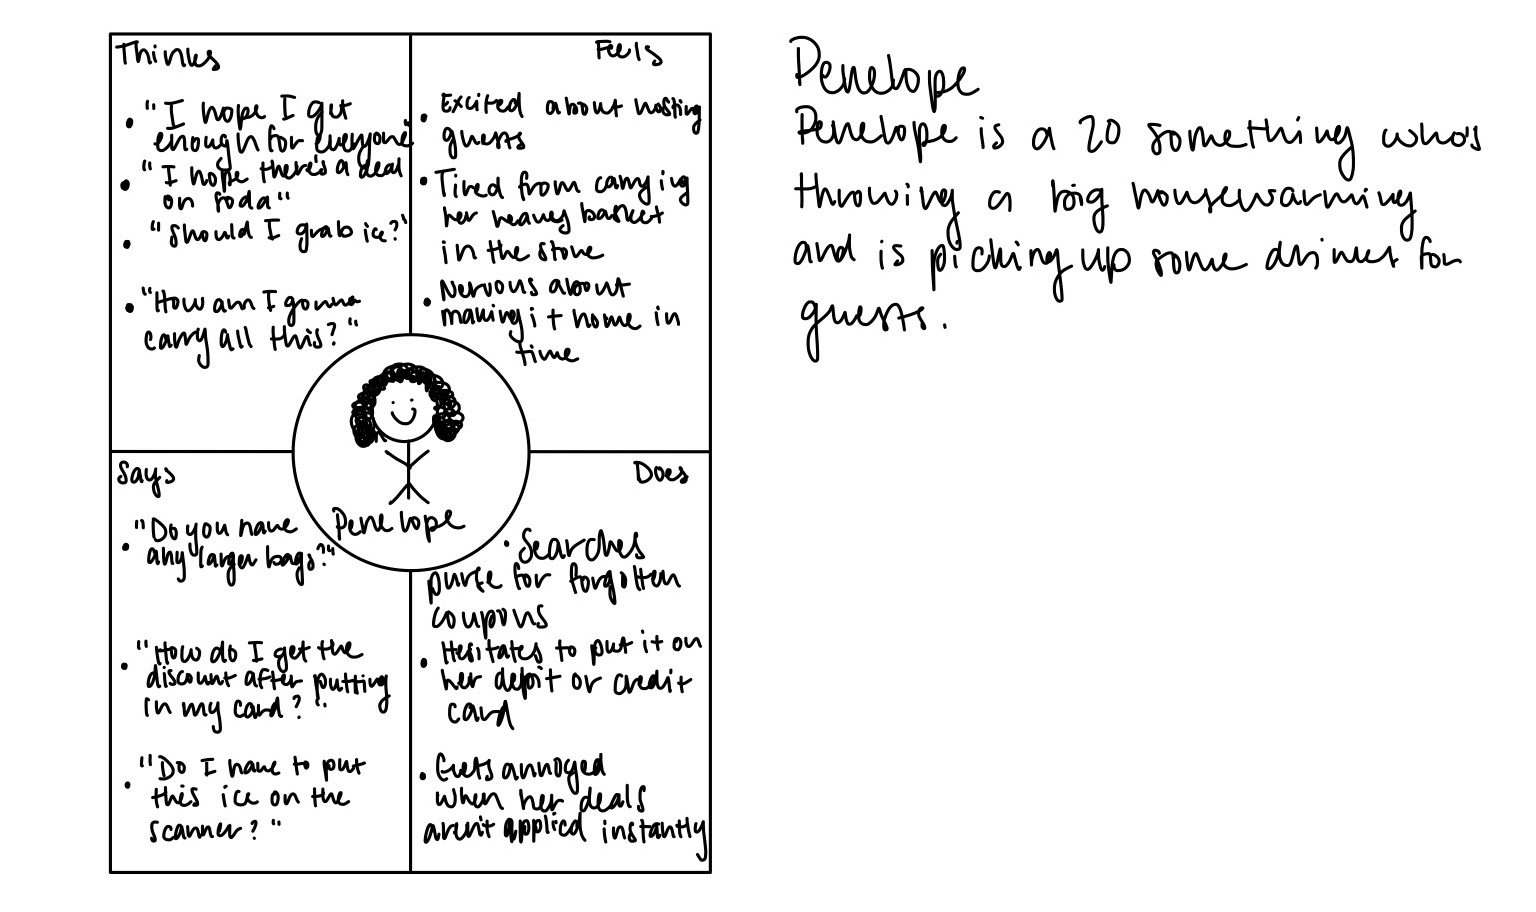 Thinks
• "I hope I get
enough for everyone"
• "I hope there's a deal
on soda"
• "Should I grab ice?"
• "How am I gonna
carry all this?"
Feels
• Excited about hosting
guests
• Tired from carrying
her heavy basket
in the store
• Nervous about
making it home in
time
Penelope
Says
• "Do you have
any larger bags?"
• "How do I get the
discount after putting
in my card?"
• "Do I have to put
this ice on the
scanner?"
Does
• Searches
purse for forgotten
coupons
• Hesitates to put it on
her depit or credit
card
• Gets annoyed
when her deals
aren't applied instantly
Penelope
Penelope is a 20 something who's
throwing a big housewarming
and is picking up some drinks for
guests.